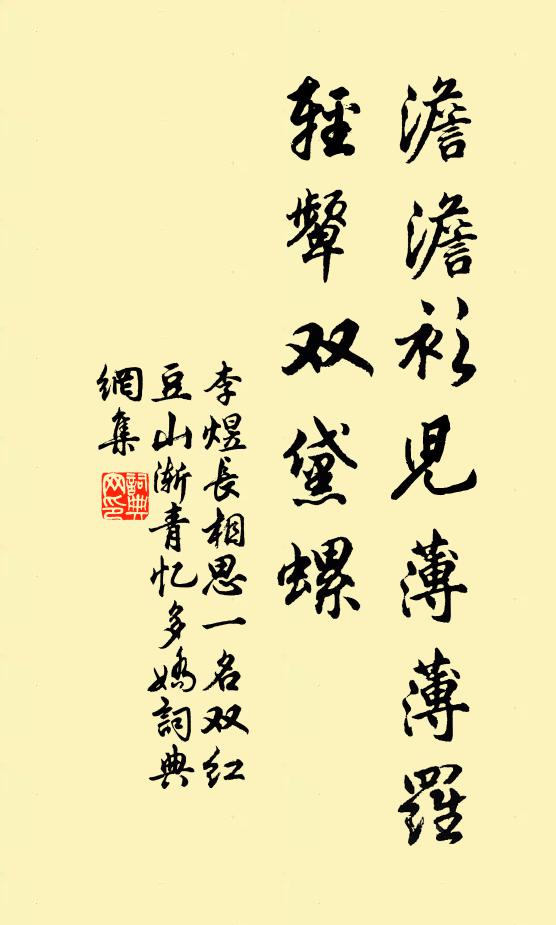 澹澹衫児薄薄羅
輕顰双黛螺
李煜長相思一名双红
豆山漸青忆多嬌詞典
網集
詞典
网印